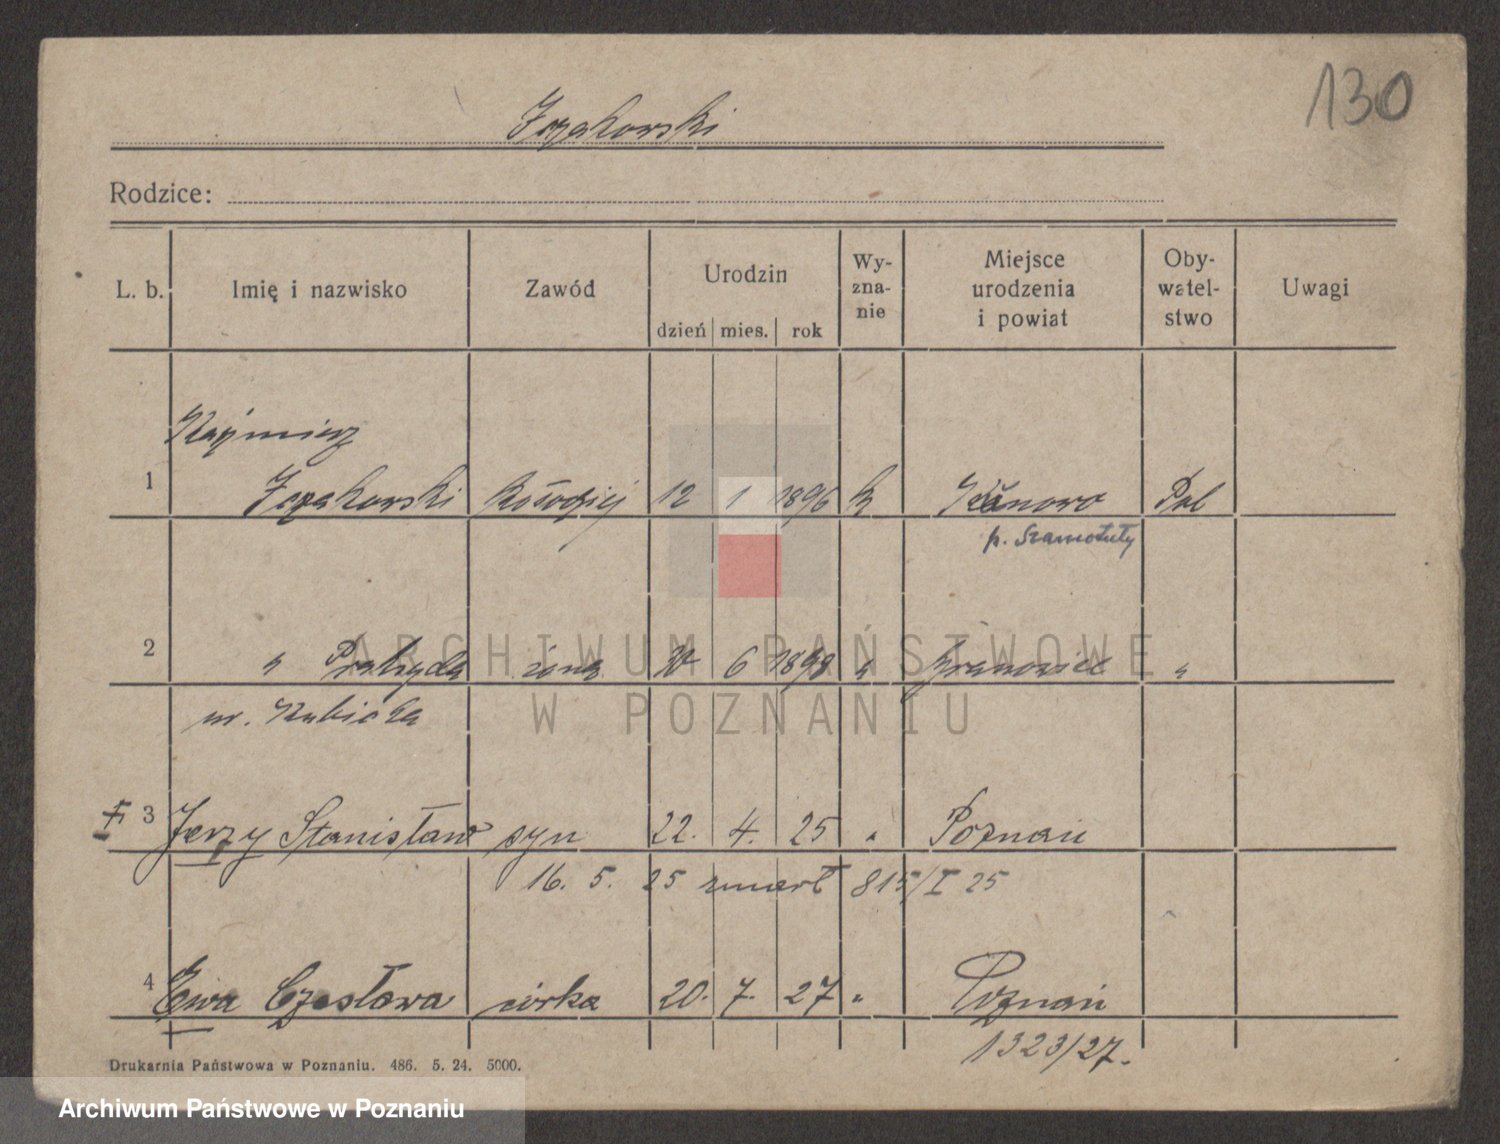 130
Rodzice:
L. b. Imię i nazwisko Zawód Urodzin dzień mies. rok Wy-zna-nie Miejsce urodzenia i powiat Oby-watel-stwo Uwagi
Kaźmierz
1 kołodziej 12 1 1896 k Pol
p. Szamotuły
2 " żona 30 6 1898 " "
ur. Kubicka
3 Jerzy Stanisław syn 22. 4. 25 " Poznań
16. 5. 25 zmarł 815/I 25
4 Ewa Czesława córka 20. 7. 27 " Poznań
1323/27.
Drukarnia Państwowa w Poznaniu. 486. 5. 24. 5000.
ARCHIWUM PAŃSTWOWE
W POZNANIU
Archiwum Państwowe w Poznaniu